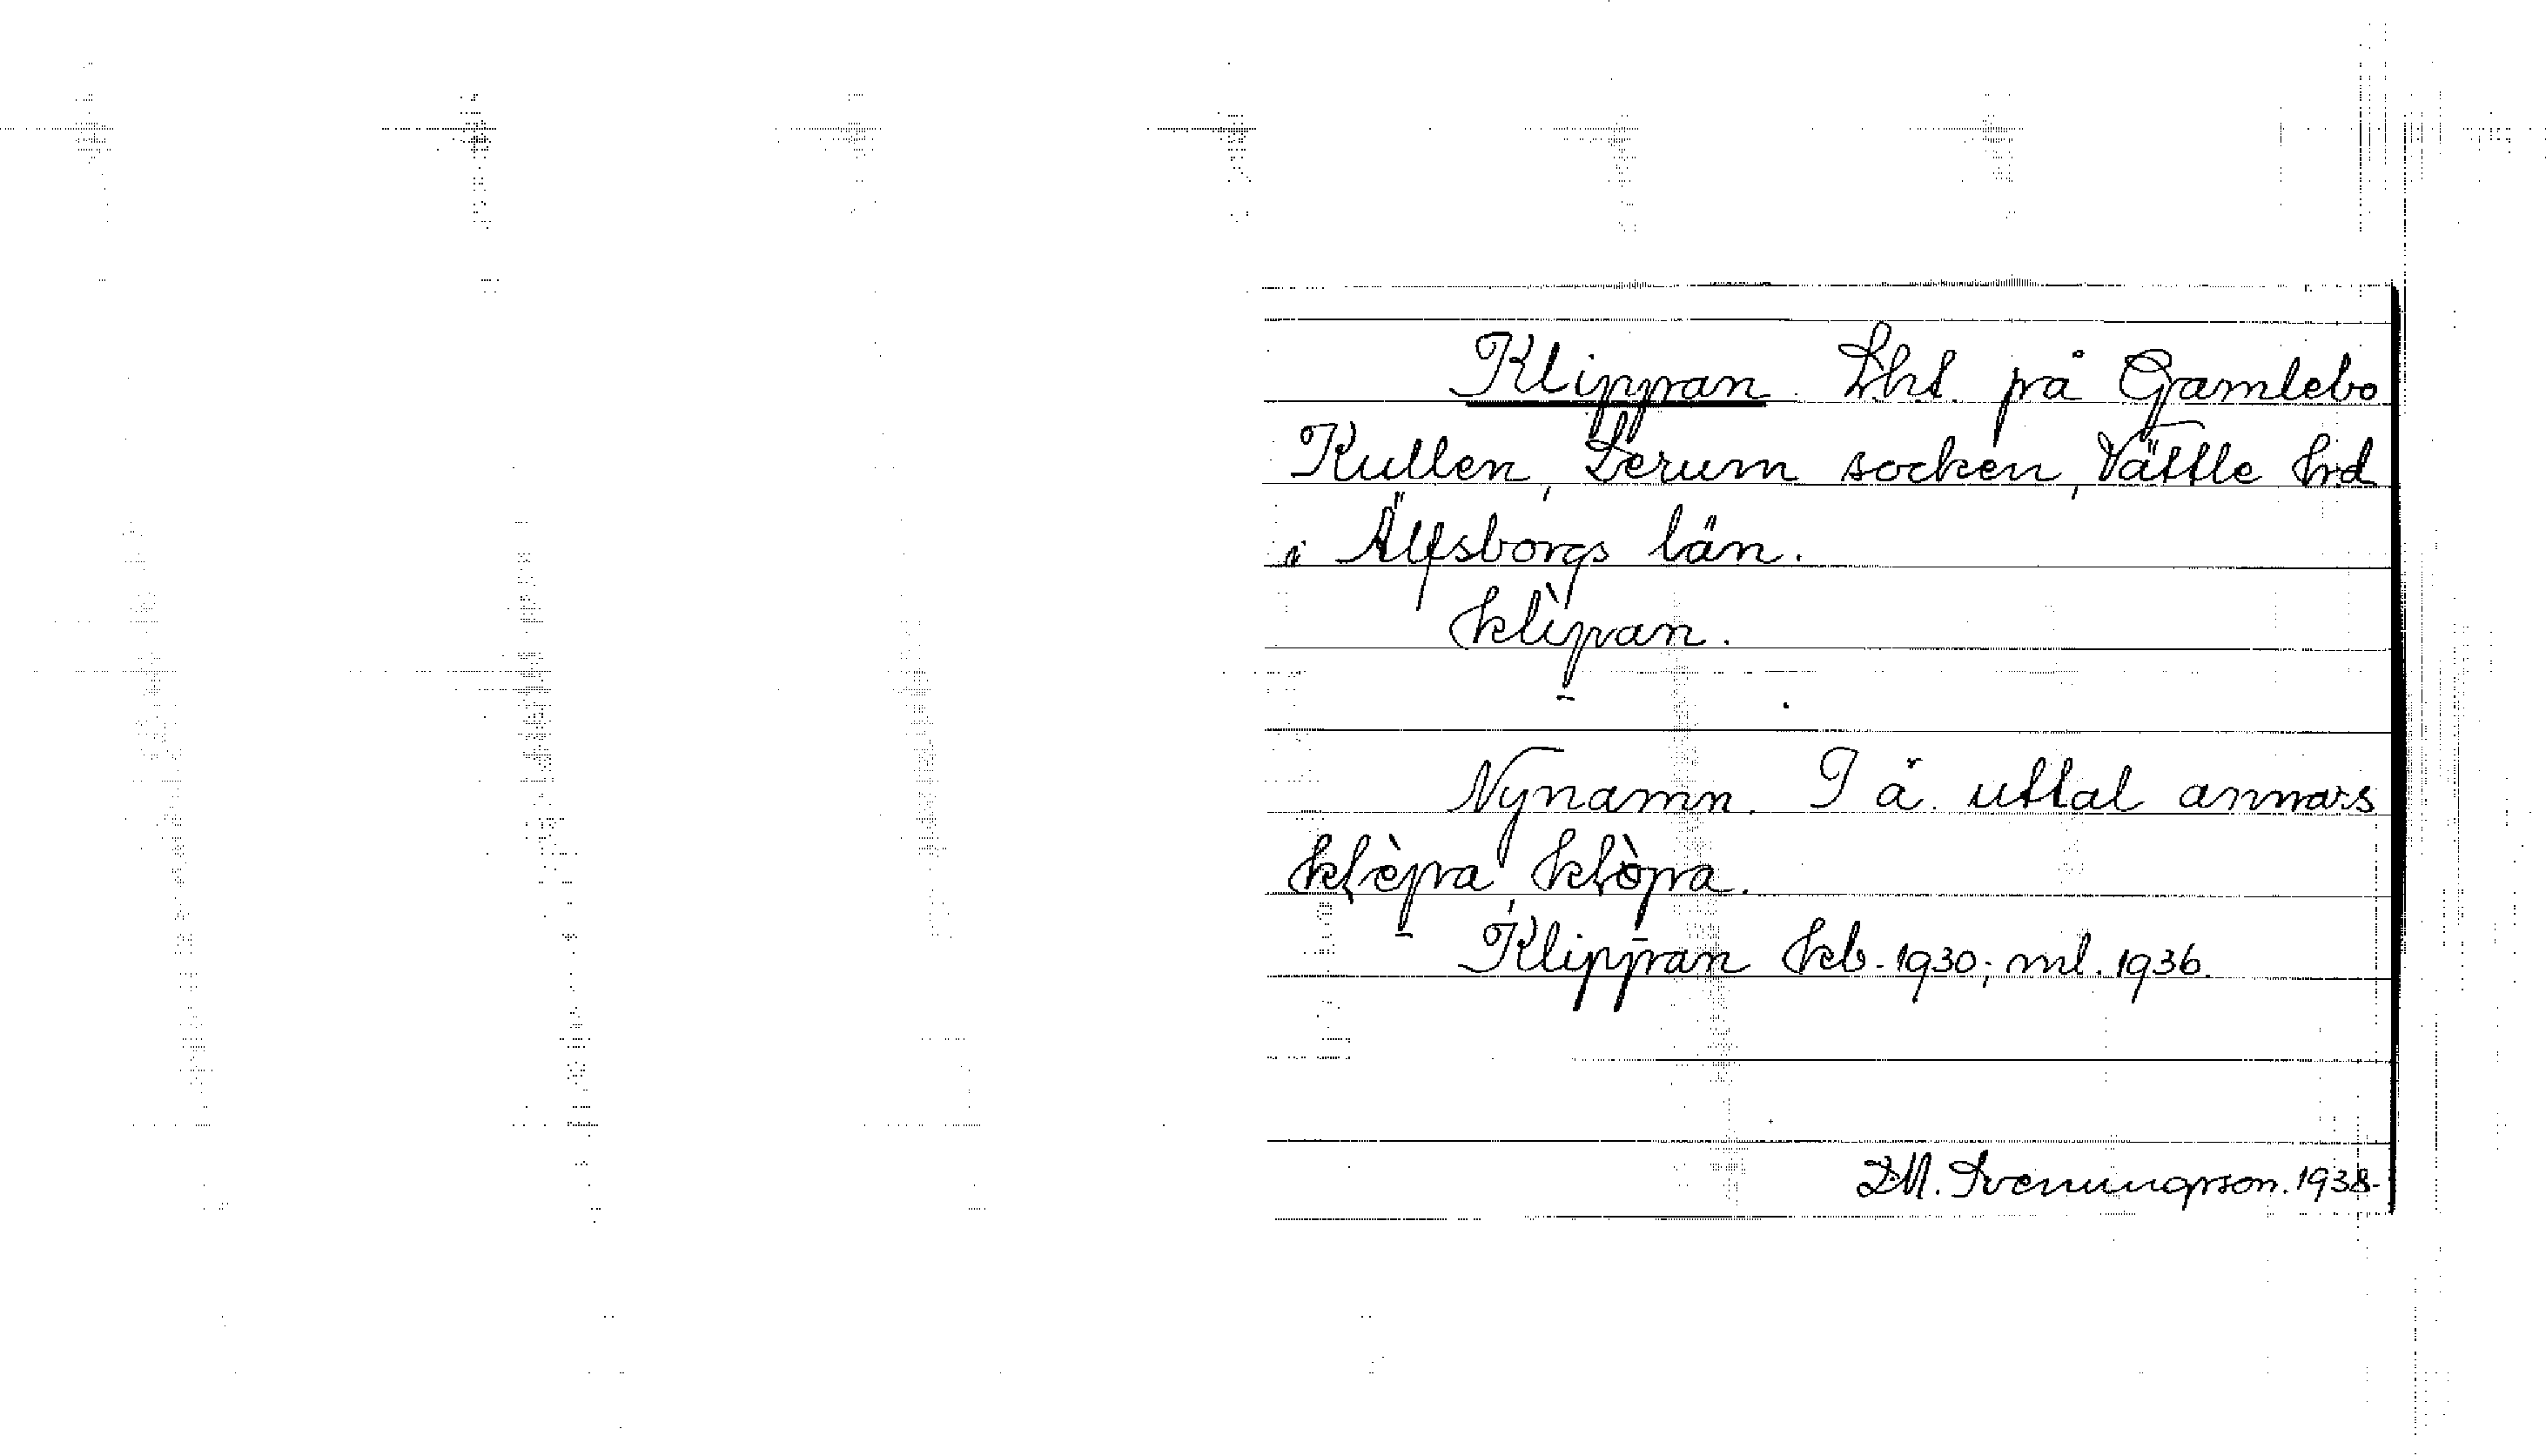 Klippan. Lht. på Gamlebo
Kullen, Lerum socken, Vättle hrd
i Älfsborgs län.
klìp̠an.
Nynamn. I ä. uttal annars
klèp̠a, klòp̠a.
Klippan kb. 1930; ml. 1936.
D.M. Svenungsson. 1938.